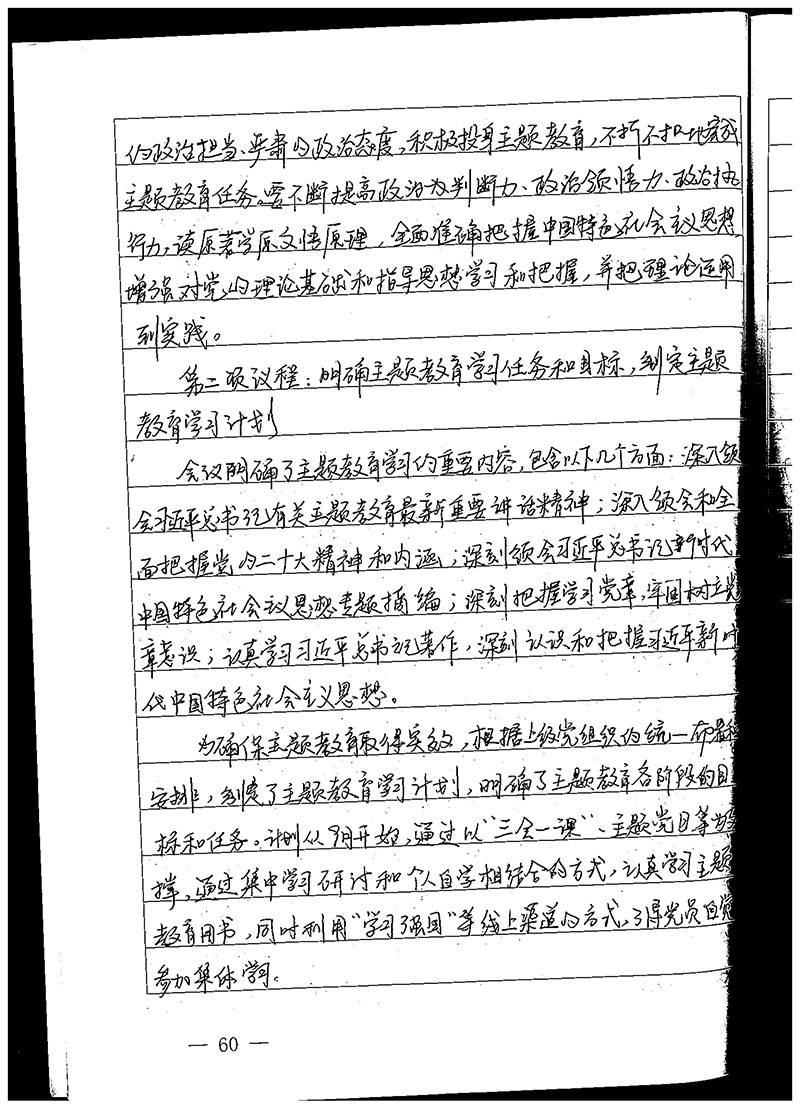 的政治担当、严肃的政治态度，积极投身主题教育，不折不扣地完成
主题教育任务。要不断提高政治判断力、政治领悟力、政治执
行力，读原著学原文悟原理，全面准确把握中国特色社会主义思想，
增强对党的理论基础和指导思想学习和把握，并把理论运用
到实践。
第二项议程：明确主题教育学习任务和目标，制定主题
教育学习计划
会议明确了主题教育学习的重要内容，包含以下几个方面：深入领
会习近平总书记有关主题教育最新重要讲话精神；深入领会和全
面把握党的二十大精神和内涵；深刻领会习近平总书记新时代
中国特色社会主义思想专题摘编；深刻把握学习党章，牢固树立党
章意识；认真学习习近平总书记著作，深刻认识和把握习近平新时
代中国特色社会主义思想。
为确保主题教育取得实效，根据上级党组织的统一部署和
安排，制定了主题教育学习计划，明确了主题教育各阶段的目
标和任务。计划从9月开始，通过以“三会一课”、主题党日等为
撑，通过集中学习研讨和个人自学相结合的方式，认真学习主题
教育用书，同时利用“学习强国”等线上渠道的方式，引得党员自觉
参加集体学习。
— 60 —